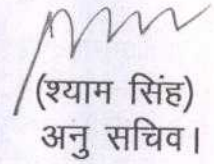 (श्याम सिंह)
अनु सचिव।